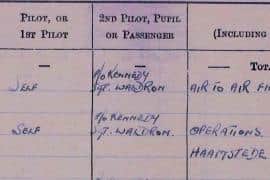 PILOT, OR
1ST PILOT
2ND PILOT, PUPIL
OR PASSENGER
(INCLUDING
—
—
— TOT
P/O KENNEDY
SELF
SGT. WALDRON.
AIR TO AIR FI
P/O KENNEDY
SELF
SGT. WALDRON.
OPERATIONS
HAAMSTEDE